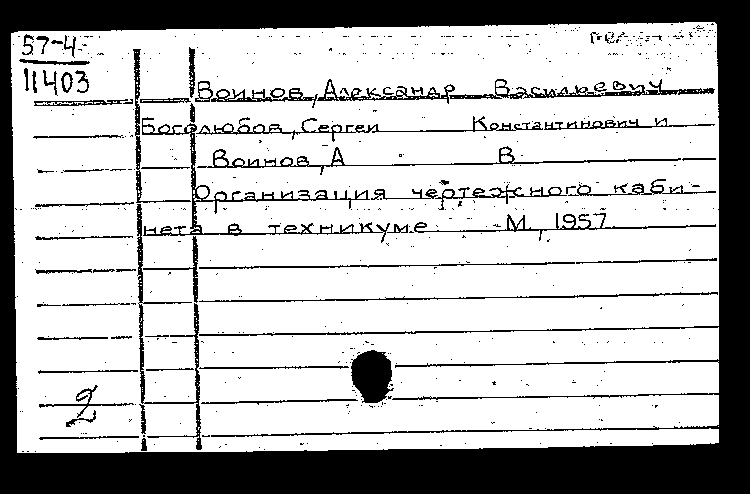 57-4
11403
Воинов, Александр Васильевич
Боголюбов, Сергей Константинович и
Воинов, А В
Организация чертежного каби-
нета в техникуме М., 1957
2